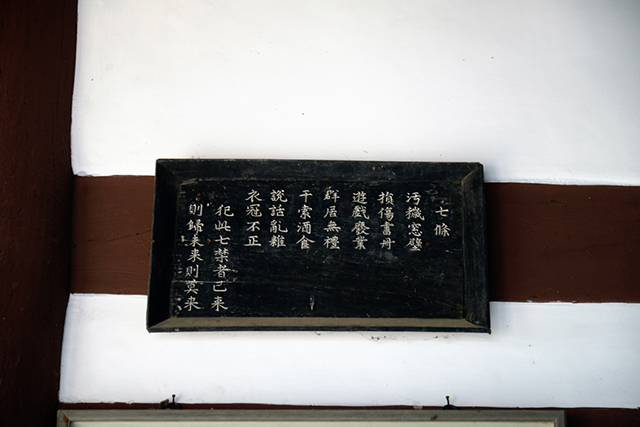 七條
汚穢窓壁
損傷書冊
遊戲廢業
群居無禮
干索酒食
說話亂雜
衣冠不正
犯此七禁者已来
則歸未来則莫来